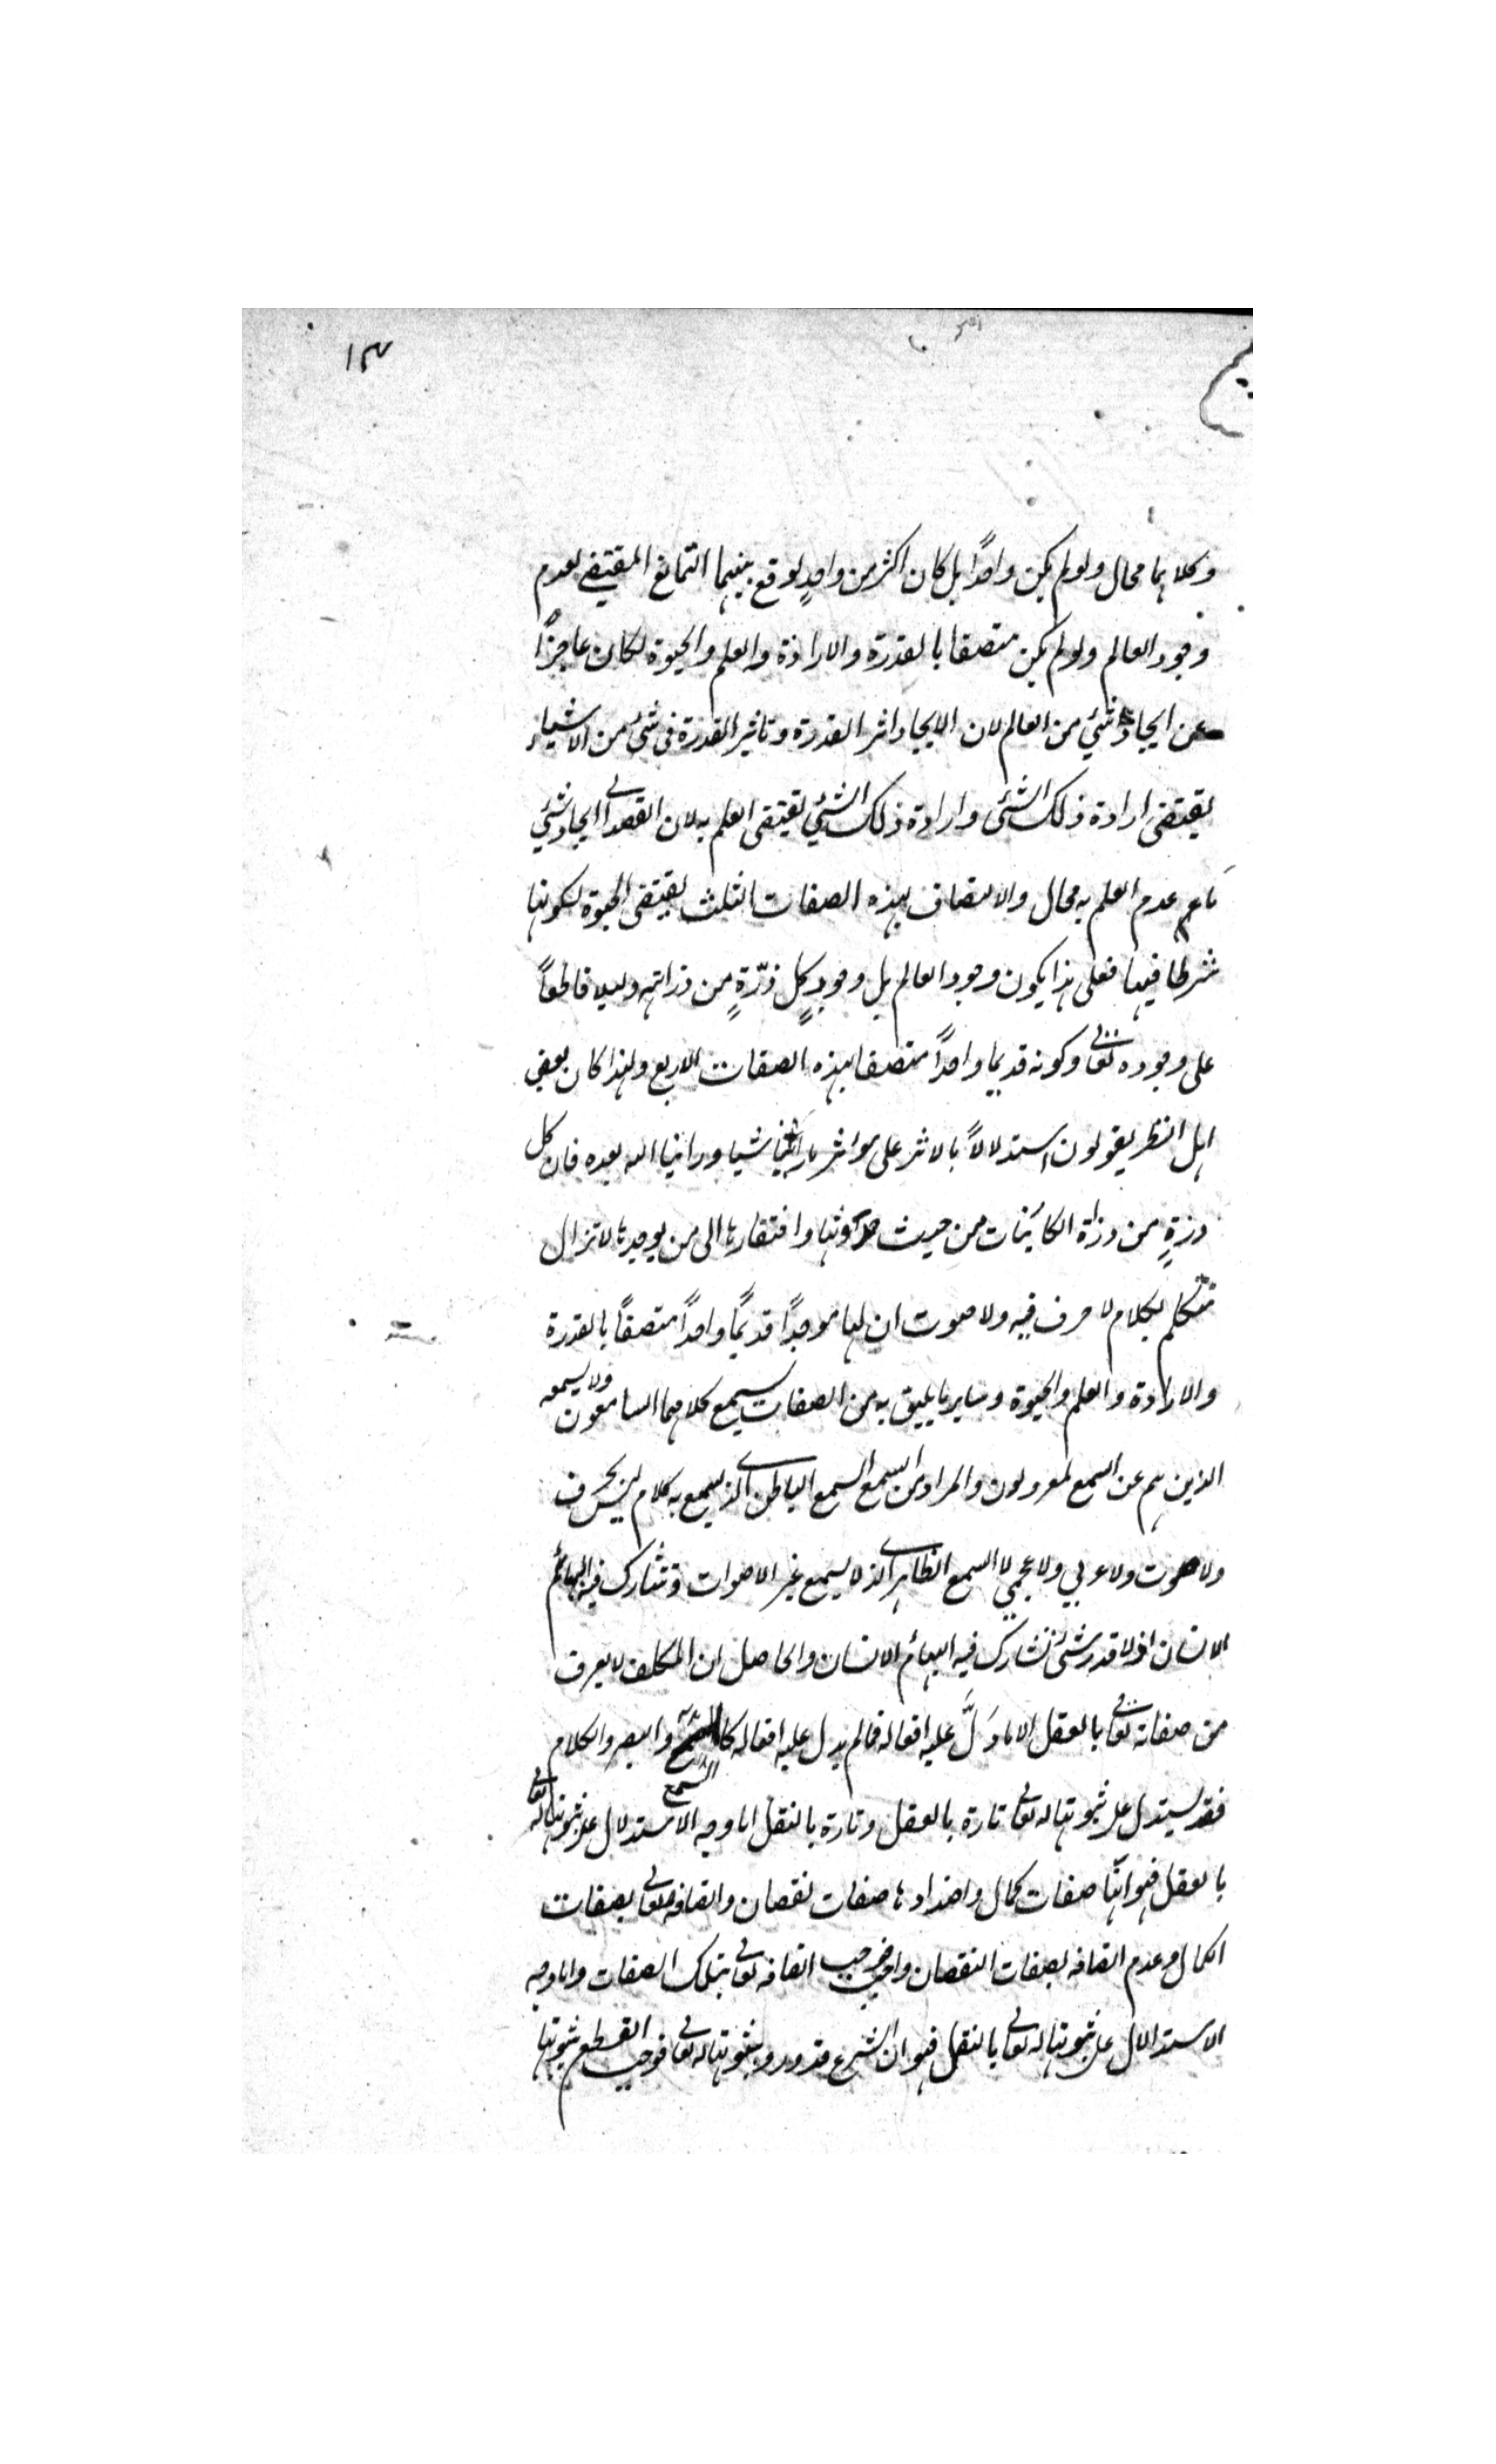 ١٣
وكلاهما محال ولو لم يكن واحدًا بل كان اكثر من واحدٍ لوقع بينهما التمانع المقتضي لعدم
وجود العالم ولو لم يكن متصفا بالقدرة والارادة والعلم والحيوة لكان عاجزًا
عن ايجاد شئي من العالم لان الايجاد اثر القدرة وتاثير القدرة في شئ من الاشياء
يقتضي ارادة ذلك الشئ وارادة ذلك الشئي تقتضي العلم به لان القصد الى ايجاد شئي
ما مع عدم العلم به محال والاتصاف بهذه الصفات الثلث يقتضي الحيوة لكونها
شرطا فيها فعلى هذا يكون وجود العالم بل وجود كل ذرّةٍ من ذراته دليلا قاطعاً
على وجوده تعالى وكونه قديما واحداً متصفا بهذه الصفات الاربع ولهذا كان بعض
اهل النظر يقولون استدلالاً بالاثر على موثر ما راينا شيا وراينا الله بعده فان كل
درةٍ من دراة الكائنات من حيث حدوثها وافتقارها الى من يوجدها لا تزال
تتكلم بكلام لا حرف فيه ولا صوت ان لها موجدًا قديمًا واحدًا متصفًا بالقدرة
والارادة والعلم والحيوة وساير ما يليق به من الصفات يسمع كلامهما السامعون ولا يسمعه
الذين هم عن السمع لمعزولون والمراد من السمع السمع الباطن الذي يسمع به كلام ليس بحرف
ولا صوت ولا عربي ولا عجمي لا السمع الظاهر الذي لا يسمع غير الاصوات وتشارك فيه البهائم
الانسان اذ لا قدر شئ تشارك فيه البهائم الانسان والحاصل ان المكلف لا يعرف
من صفاته تعالى بالعقل الا ما دَلَّ عليه افعاله فما لم يدل عليه افعاله كالسمع والبصر والكلام
السمع
فقد يستدل على ثبوتها له تعالى تارة بالعقل وتارة بالنقل اما وجه الاستدلال على ثبوتها له تعالى
بالعقل فهو انّها صفات كمال واضدادها صفات نقصان واتصافه تعالى بصفات
الكمال وعدم اتصافه بصفات النقصان واجب فوجب اتصافه تعالى بتلك الصفات واما وجه
الاستدالال على ثبوتها له تعالى بالنقل فهو ان الشرع قد ورد بثبوتها له تعالى فوجب القطع بثبوتها